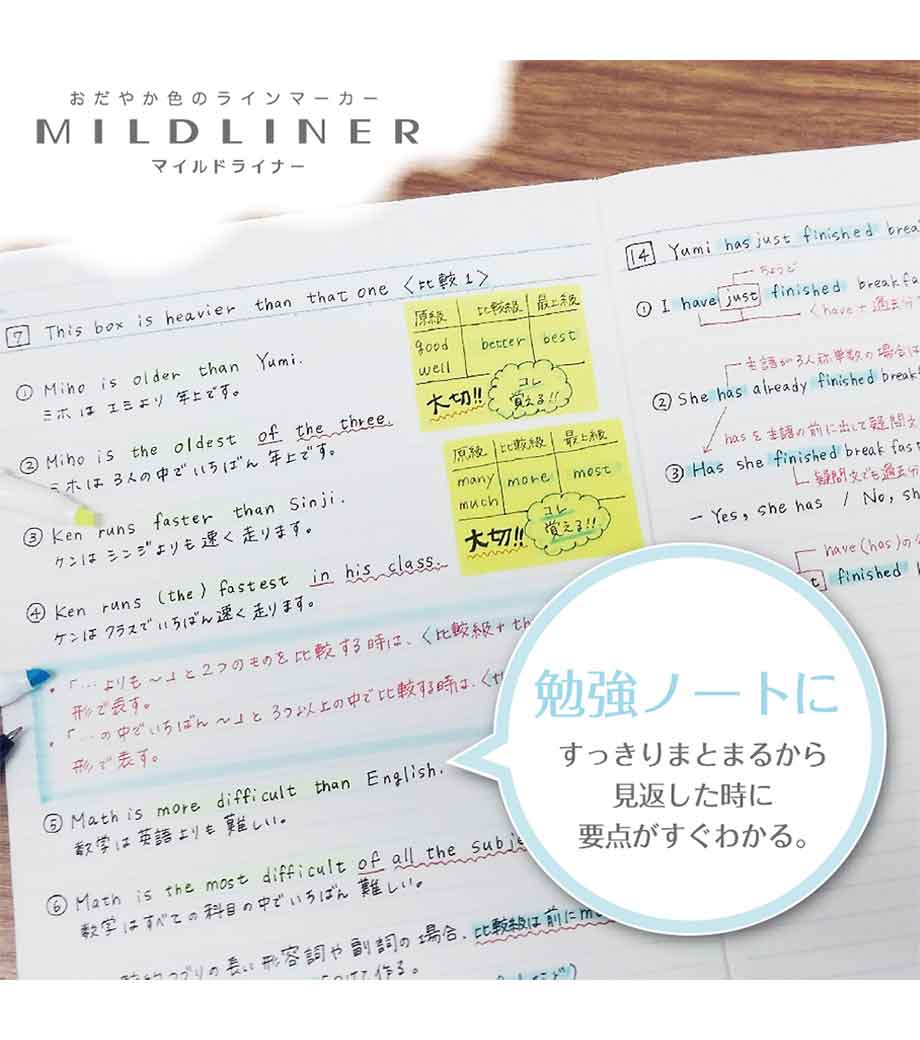 おだやか色のラインマーカー
MILDLINER
マイルドライナー
7 This box is heavier than that one 〈比較1〉
① Miho is older than Yumi.
ミホは エミより 年上です。
② Miho is the oldest of the three.
ミホは 3人の中でいちばん 年上です。
③ Ken runs faster than Sinji.
ケンは シンジよりも速く 走ります。
④ Ken runs (the) fastest in his class.
ケンは クラスでいちばん速く 走ります。
・「…よりも〜」と2つのものを比較する時は、〈比較級+th
形で表す。
・「…の中でいちばん〜」と 3つ以上の中で比較する時は、〈th
形で表す。
⑤ Math is more difficult than English.
数学は英語よりも 難しい。
⑥ Math is the most difficult of all the subj
数学はすべての科目の中でいちばん 難しい。
つづりの長い形容詞や副詞の場合、比較級は前にmo
つけて作る。
原級 比較級 最上級
good better best
well
大切!! コレ
覚える!!
原級 比較級 最上級
many more most
much
大切!! コレ
覚える!!
14 Yumi has just finished brea
ちょうど
① I have just finished breakfa
〈have+過去分
主語が3人称単数の場合は
② She has already finished break
hasを主語の前に出して疑問文
③ Has she finished breakfas
疑問文でも過去分
– Yes, she has / No, sh
have(has)の
t finished
勉強ノートに
すっきりまとまるから
見返した時に
要点がすぐわかる。